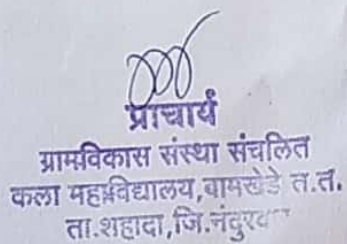 प्राचार्य
ग्रामविकास संस्था संचलित
कला महाविद्यालय,बामखेडे त.त.
ता.शहादा,जि.